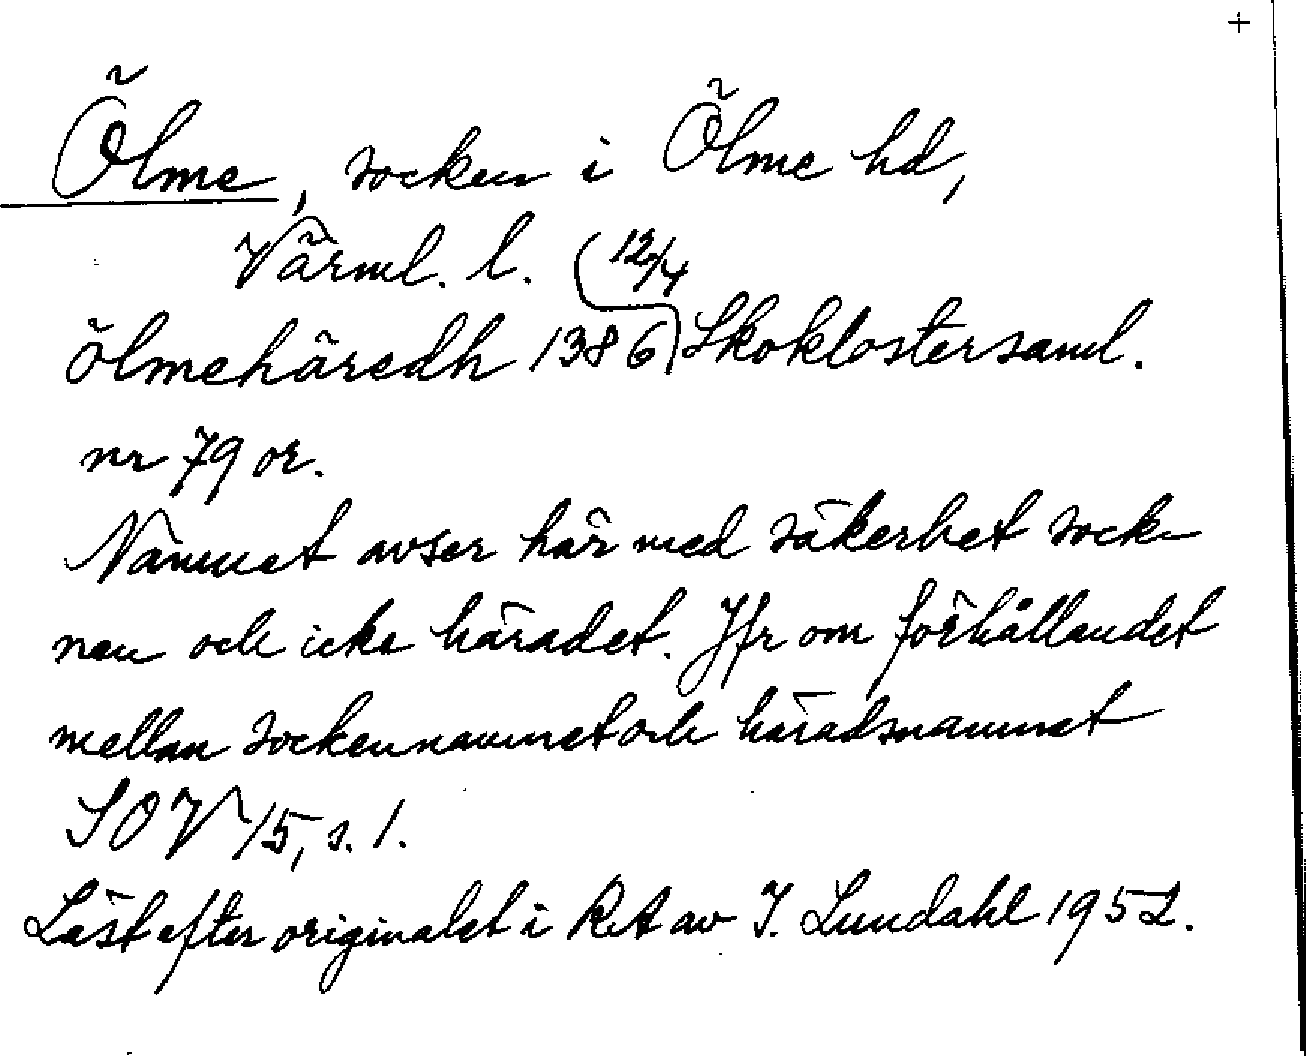 +
Ölme, socken i Ölme hd,
Värml. l. (12/4
ölmehäredh 1386) Skoklostersaml.
nr 79 or.
Namnet avser här med säkerhet sock-
nen och icke häradet. Jfr om förhållandet
mellan sockennamnet och häradsnamnet
SOV 15, s. 1.
Läst efter originalet i RA av I. Lundahl 1952.